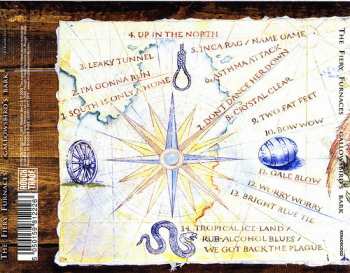 4. UP IN THE NORTH
5. INCA RAG / NAME GAME
3. LEAKY TUNNEL
6. ASTHMA ATTACK
2. I'M GONNA RUN
7. DON'T DANCE HER DOWN
1. SOUTH IS ONLY A HOME
8. CRYSTAL CLEAR
9. TWO FAT FEET
10. BOW WOW
11. GALE BLOW
12. WORRY WORRY
13. BRIGHT BLUE TIE
14. TROPICAL ICE-LAND /
RUB-ALCOHOL BLUES /
WE GOT BACK THE PLAGUE
THE FIERY FURNACES GALLOWSBIRD'S BARK
THE FIERY FURNACES GALLOWSBIRD'S BARK
ROUGH
TRADE